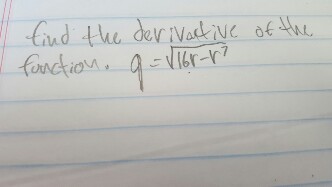 find the derivative of the
function. q = √16r-r⁷